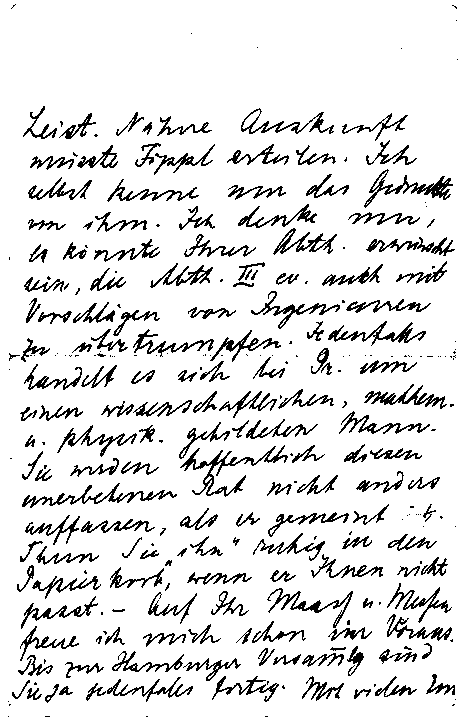 leist. Nähere Auskunft
müsste Föppl erteilen. Ich
selbst kenne nur das Gedruckte
von ihm. Ich denke nur,
es könnte Ihrer Abth. erwünscht
sein, die Abth. III ev. auch mit
Vorschlägen von Ingenieuren
zu übertrumpfen. Jedenfalls
handelt es sich bei Pr. um
einen wissenschaftlichen, mathem.
u. physik. gebildeten Mann.
Sie werden hoffentlich diesen
unerbetenen Rat nicht anders
auffassen, als er gemeint ist.
Thun Sie „ihn" ruhig in den
Papierkorb, wenn er Ihnen nicht
passt. – Auf Ihr Maass u. Messen
freue ich mich schon im Voraus.
Bis zur Hamburger Versamlg sind
Sie ja jedenfalls fertig. Mit vielen